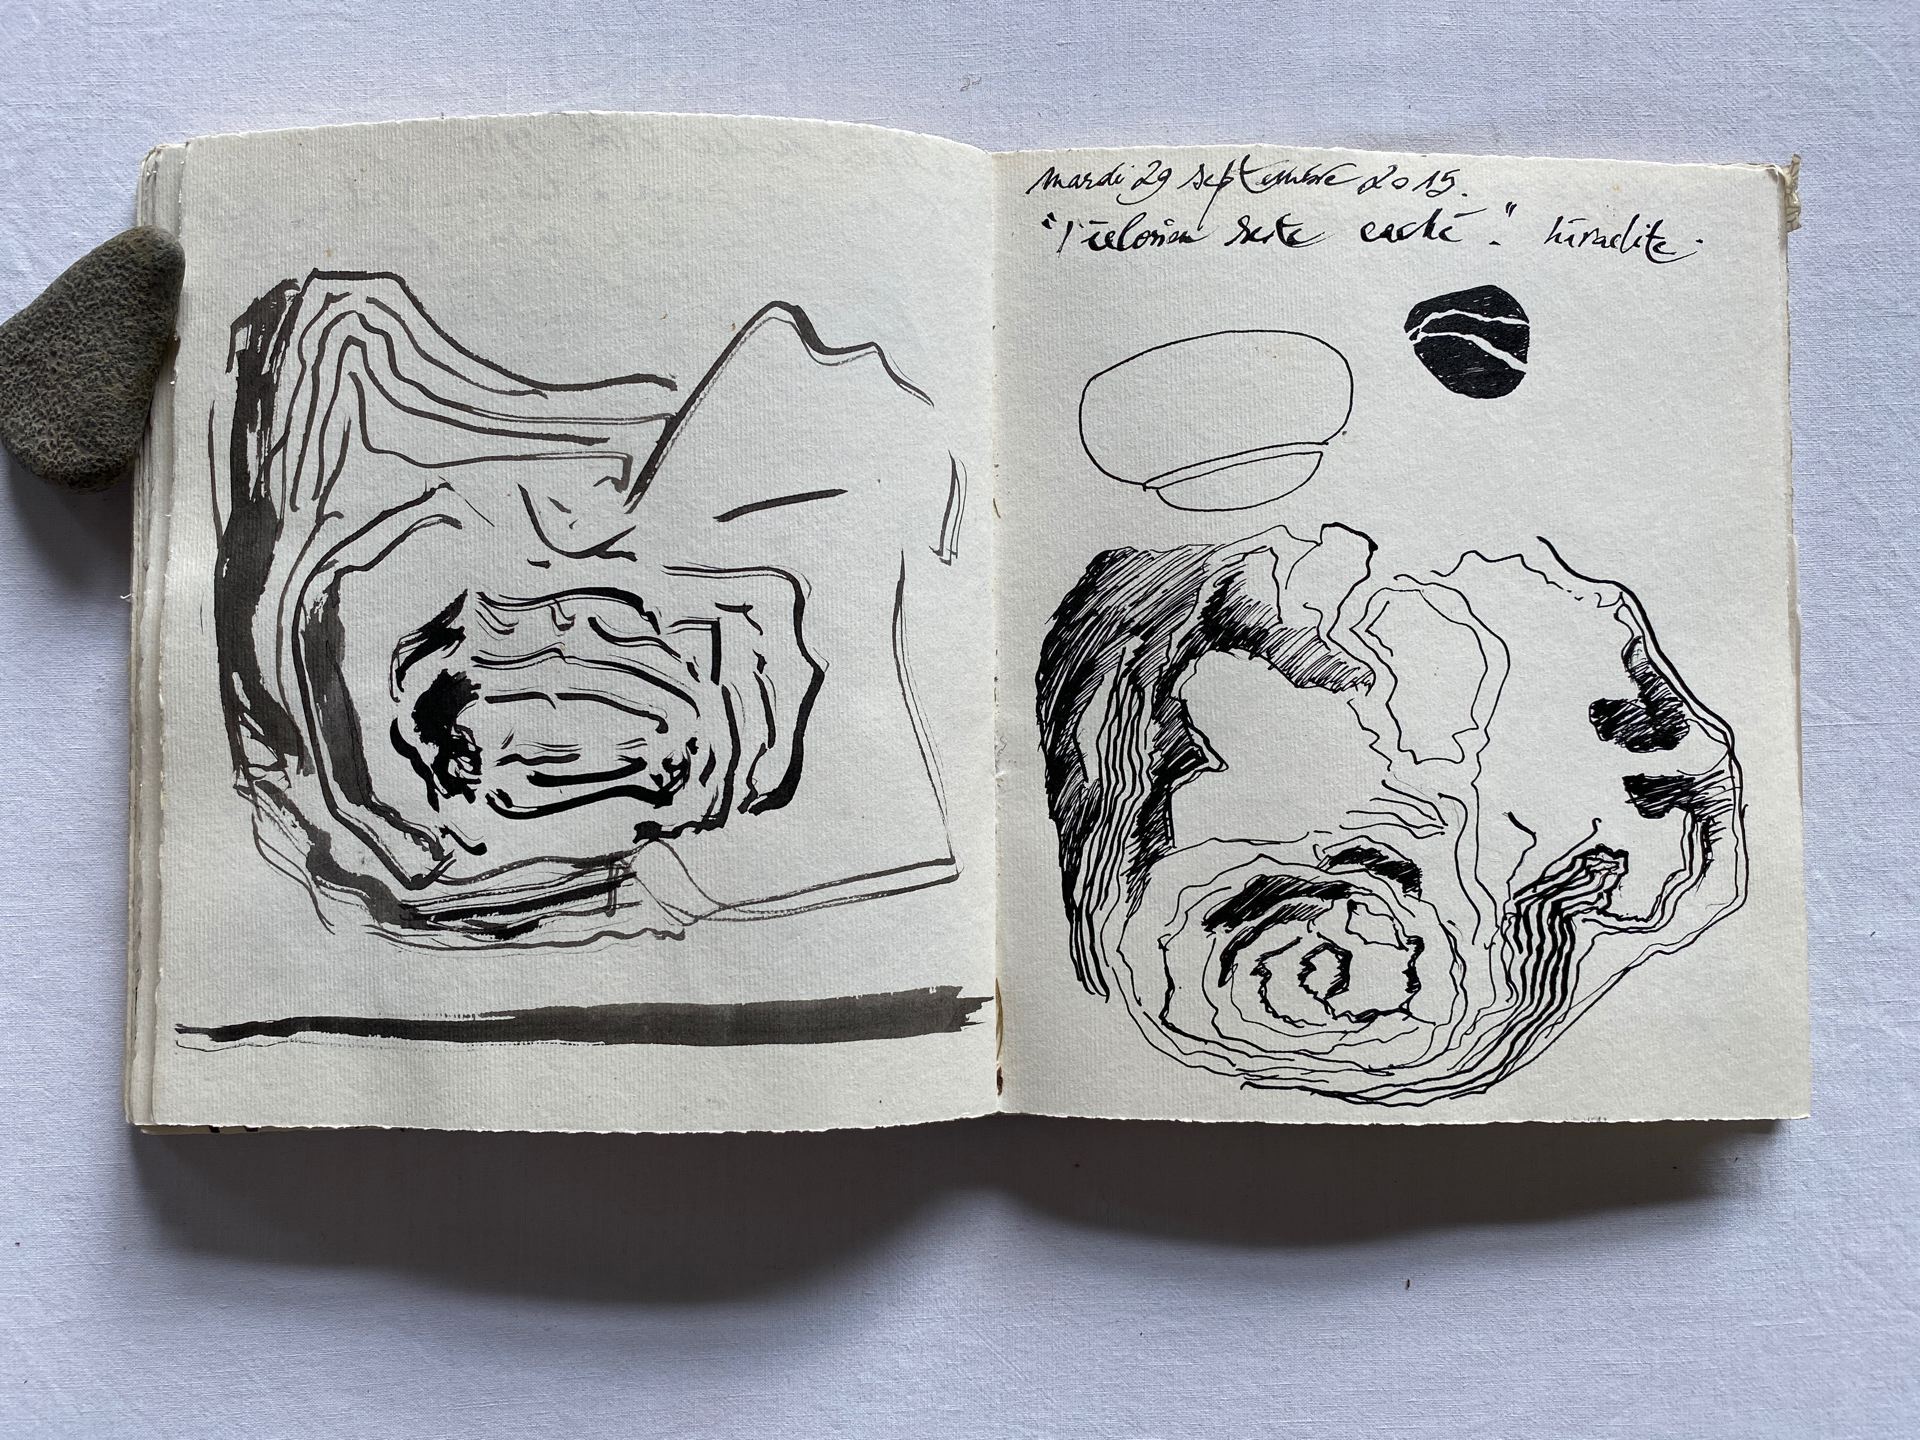 mardi 29 septembre 2015.
"l'éclosion reste caché." héraclite.